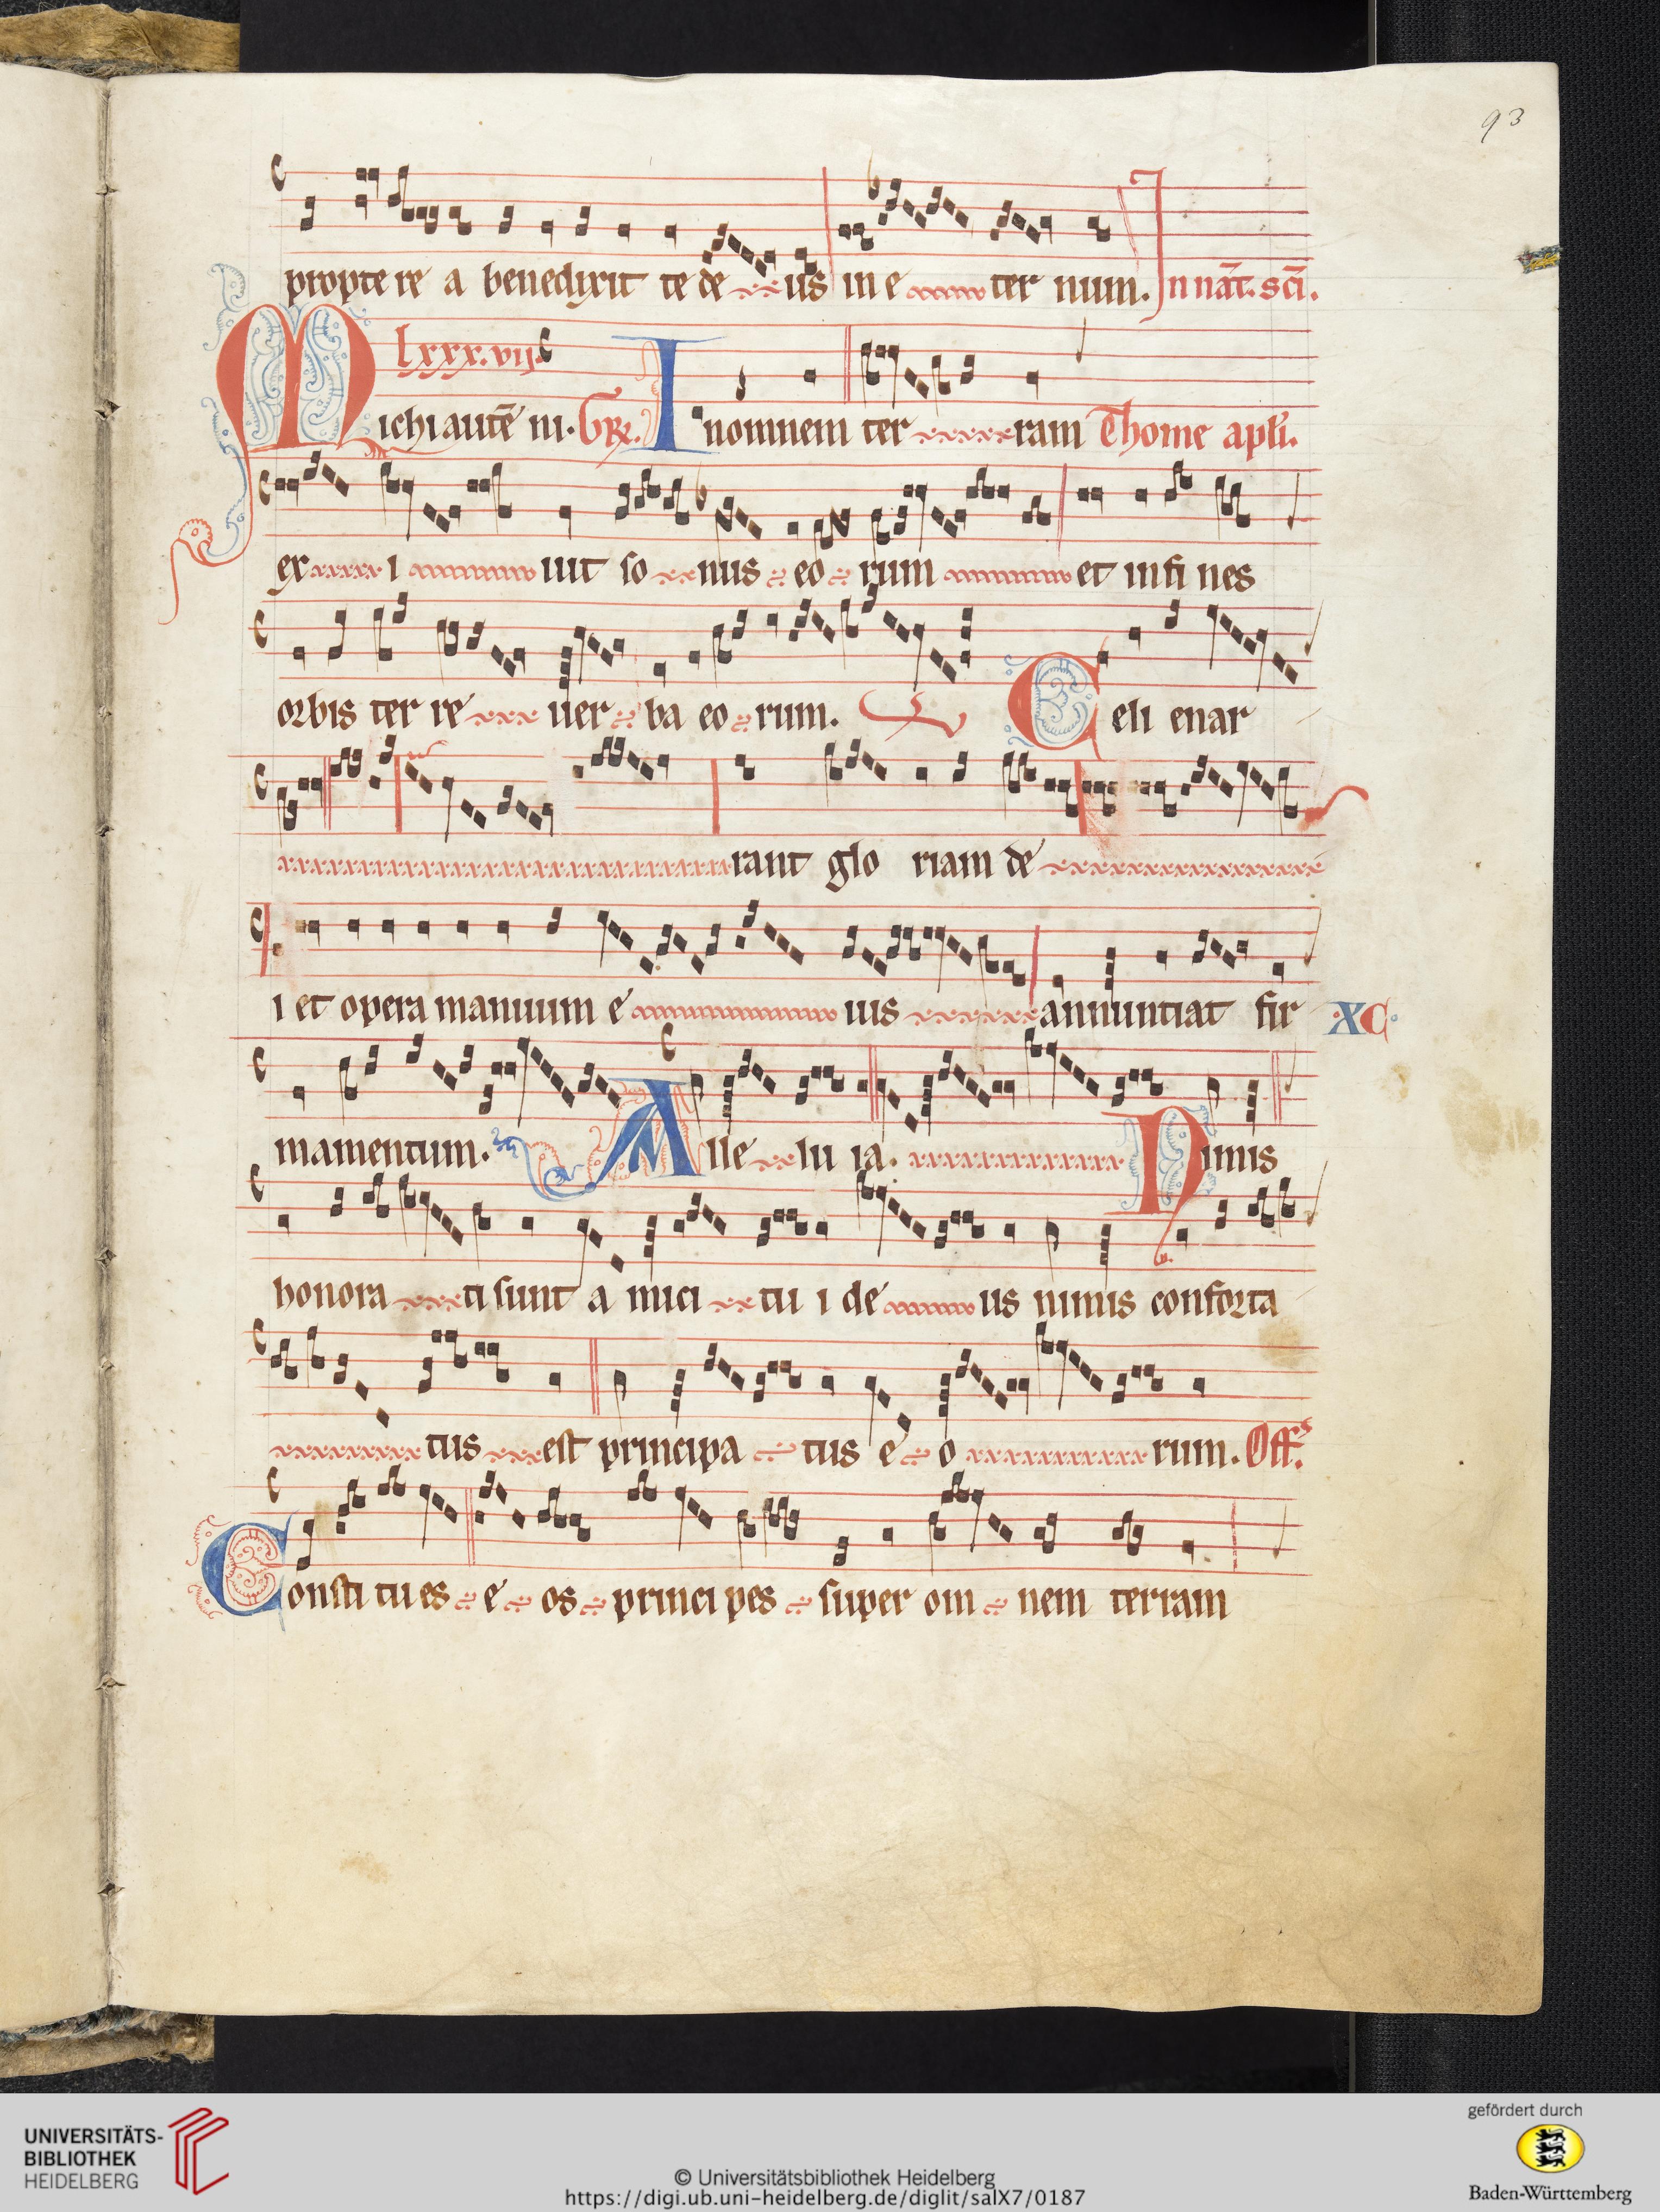 93
propte re a benedixit te de us in e ter num. In nat̄. sc̄i.
lxxx.vij.
Michi autē ni. Gr̄. In omnem ter ram Thome apl̄i.
ex i uit so nus eo rum et in fi nes
orbis ter re uer ba eo rum. Celi enar
rant glo riam de
i et opera manuum e ius annuntiat fir XC
mamentum. Alle lu ia. Nimis
honora ti sunt a mici tu i de us nimis conforta
tus est principa tus e o rum. Off.
Constitu es e os princi pes super om nem terram
UNIVERSITÄTS-
BIBLIOTHEK
HEIDELBERG
© Universitätsbibliothek Heidelberg
https://digi.ub.uni-heidelberg.de/diglit/salX7/0187
gefördert durch
Baden-Württemberg